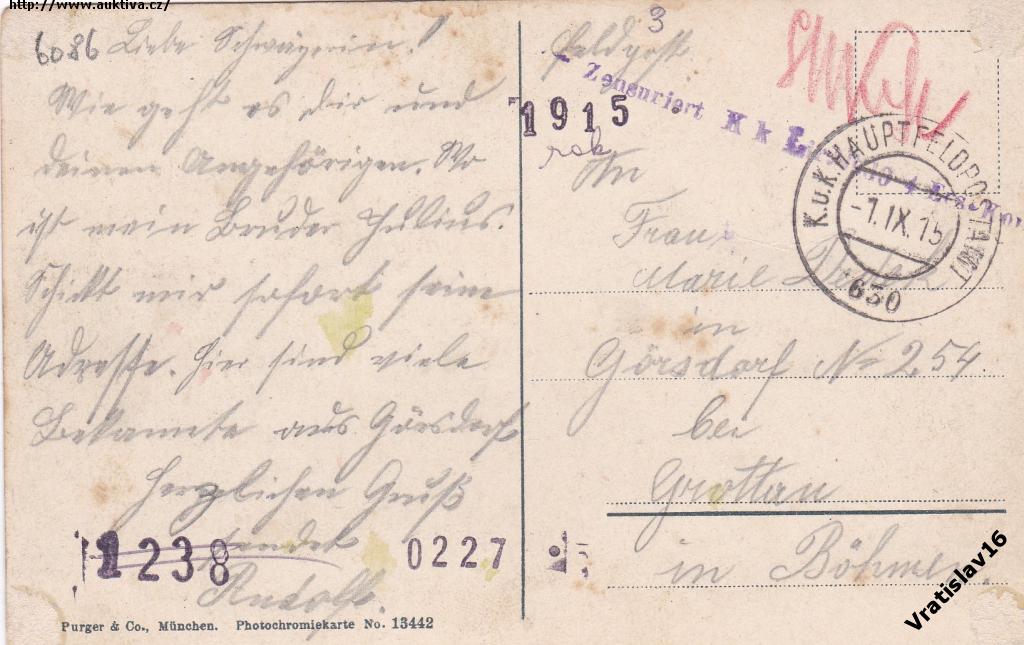 http://www.auktiva.cz/
6086 Liebe Schwägerin!
Wie geht es dir und
deinen Angehörigen. Wo
ist mein Bruder Julius.
Schickt mir sofort seine
Adresse. Hier sind viele
Bekannte aus Görsdorf
Herzlichen Gruß
sendet
Rudolf.
1238
0227
Purger & Co., München. Photochromiekarte No. 13442
3
Feldpost
Zensuriert K k L
1915
rok
An
Frau
Marie
in
Görsdorf No 254.
bei
Grottau
in Böhmen.
K.u.K. HAUPTFELDPOSTAMT
-1.IX.15
630
Vratislav16